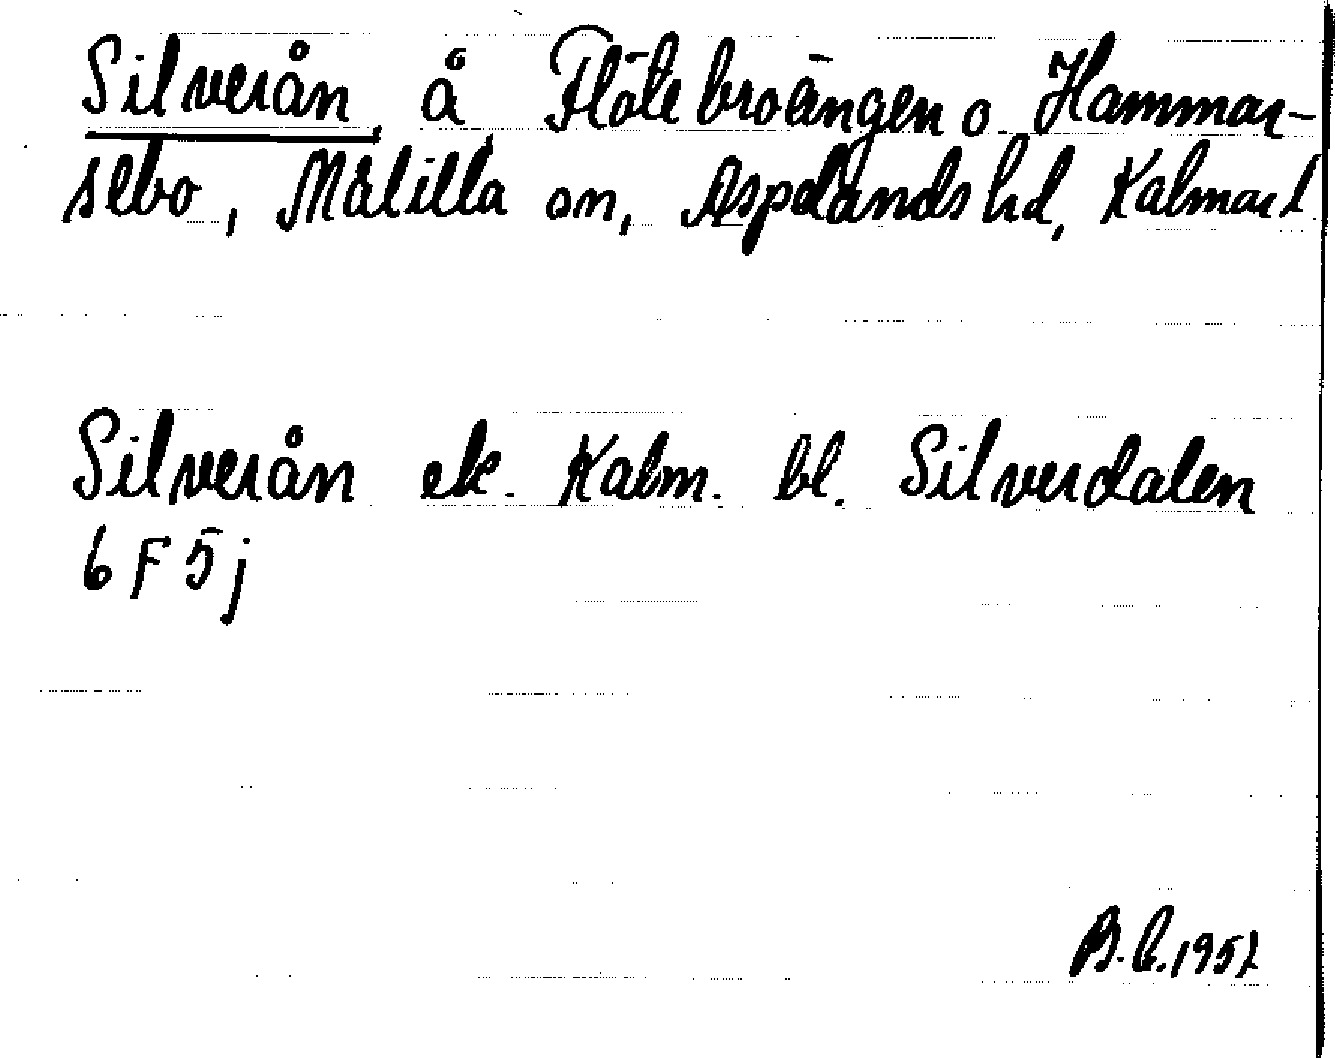 Silverån, å Flötebroängen o Hammar-
sebo, Målilla sn, Aspelands hd, Kalmar l
Silverån ek. Kalm. bl. Silverdalen
6 F 5 j
B.C. 1957